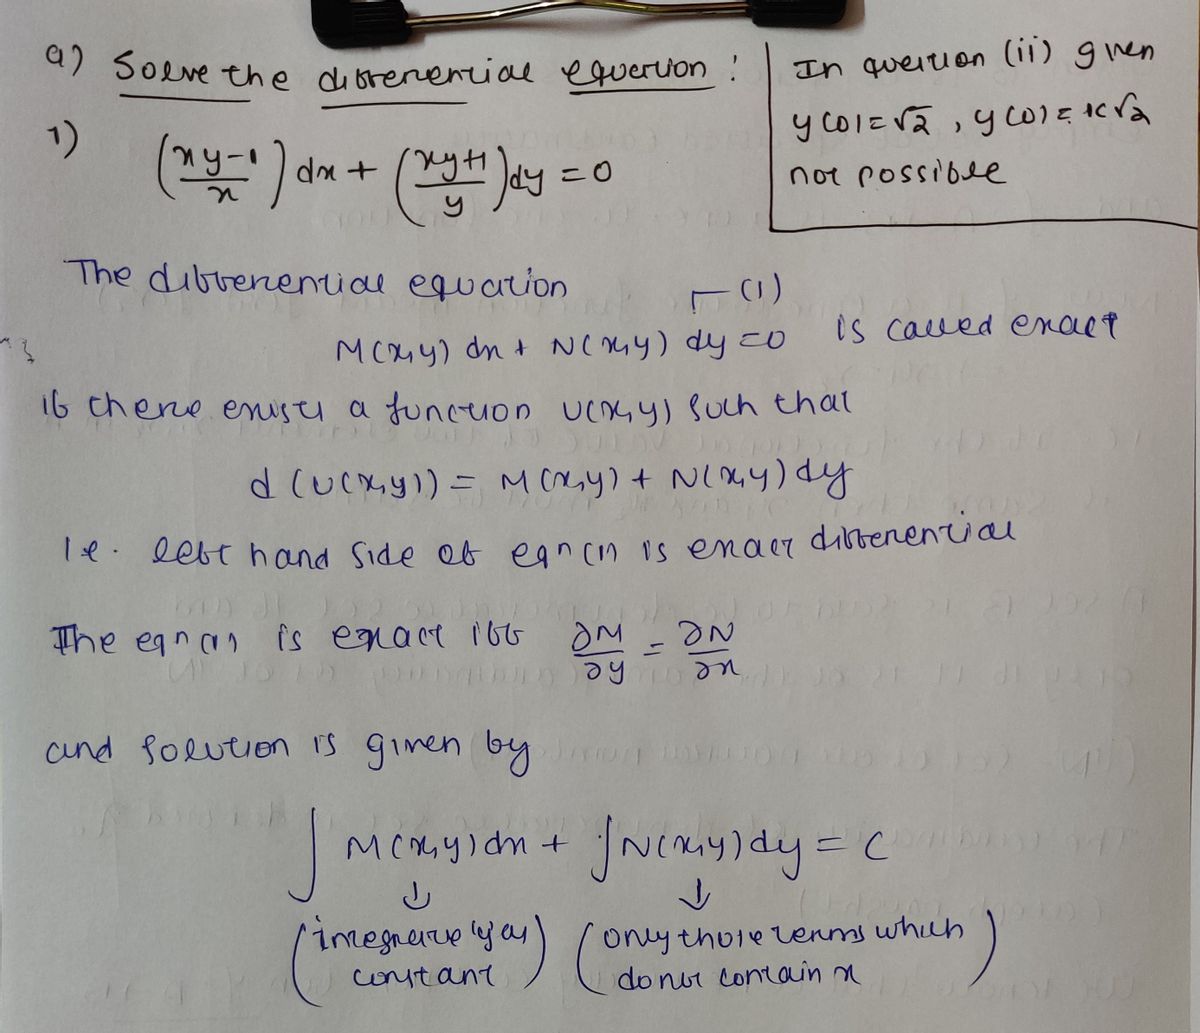 a) Solve the differential equation :
1) (xy-1/x) dx + (xy+1/y) dy = 0
In question (ii) given
y(0) = √2 , y(0) = k√2
not possible
The differential equation
M(x,y) dx + N(x,y) dy = 0 —(1) is called exact
if there exists a function u(x,y) such that
d (u(x,y)) = M(x,y) + N(x,y) dy
i.e. left hand side of eqn (1) is exact differential
The eqn (1) is exact iff ∂M/∂y = ∂N/∂x
and solution is given by
∫ M(x,y) dx + ∫ N(x,y) dy = C
↓ ↓
(integrate y as constant) (only those terms which do not contain x)